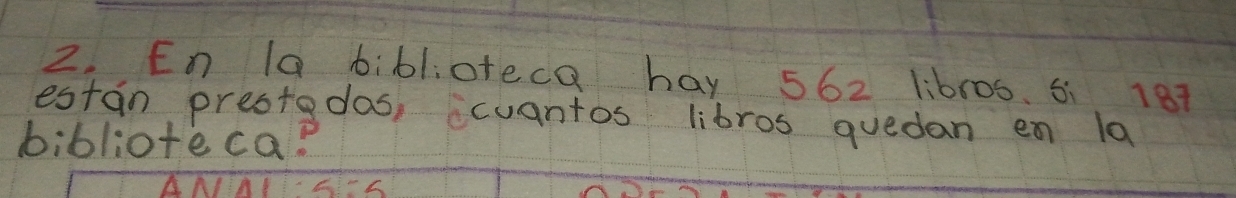 2. En la biblioteca hay 562 libros. Si 187
están prestadas, ¿cuantos libros quedan en la
biblioteca?
ANALISIS